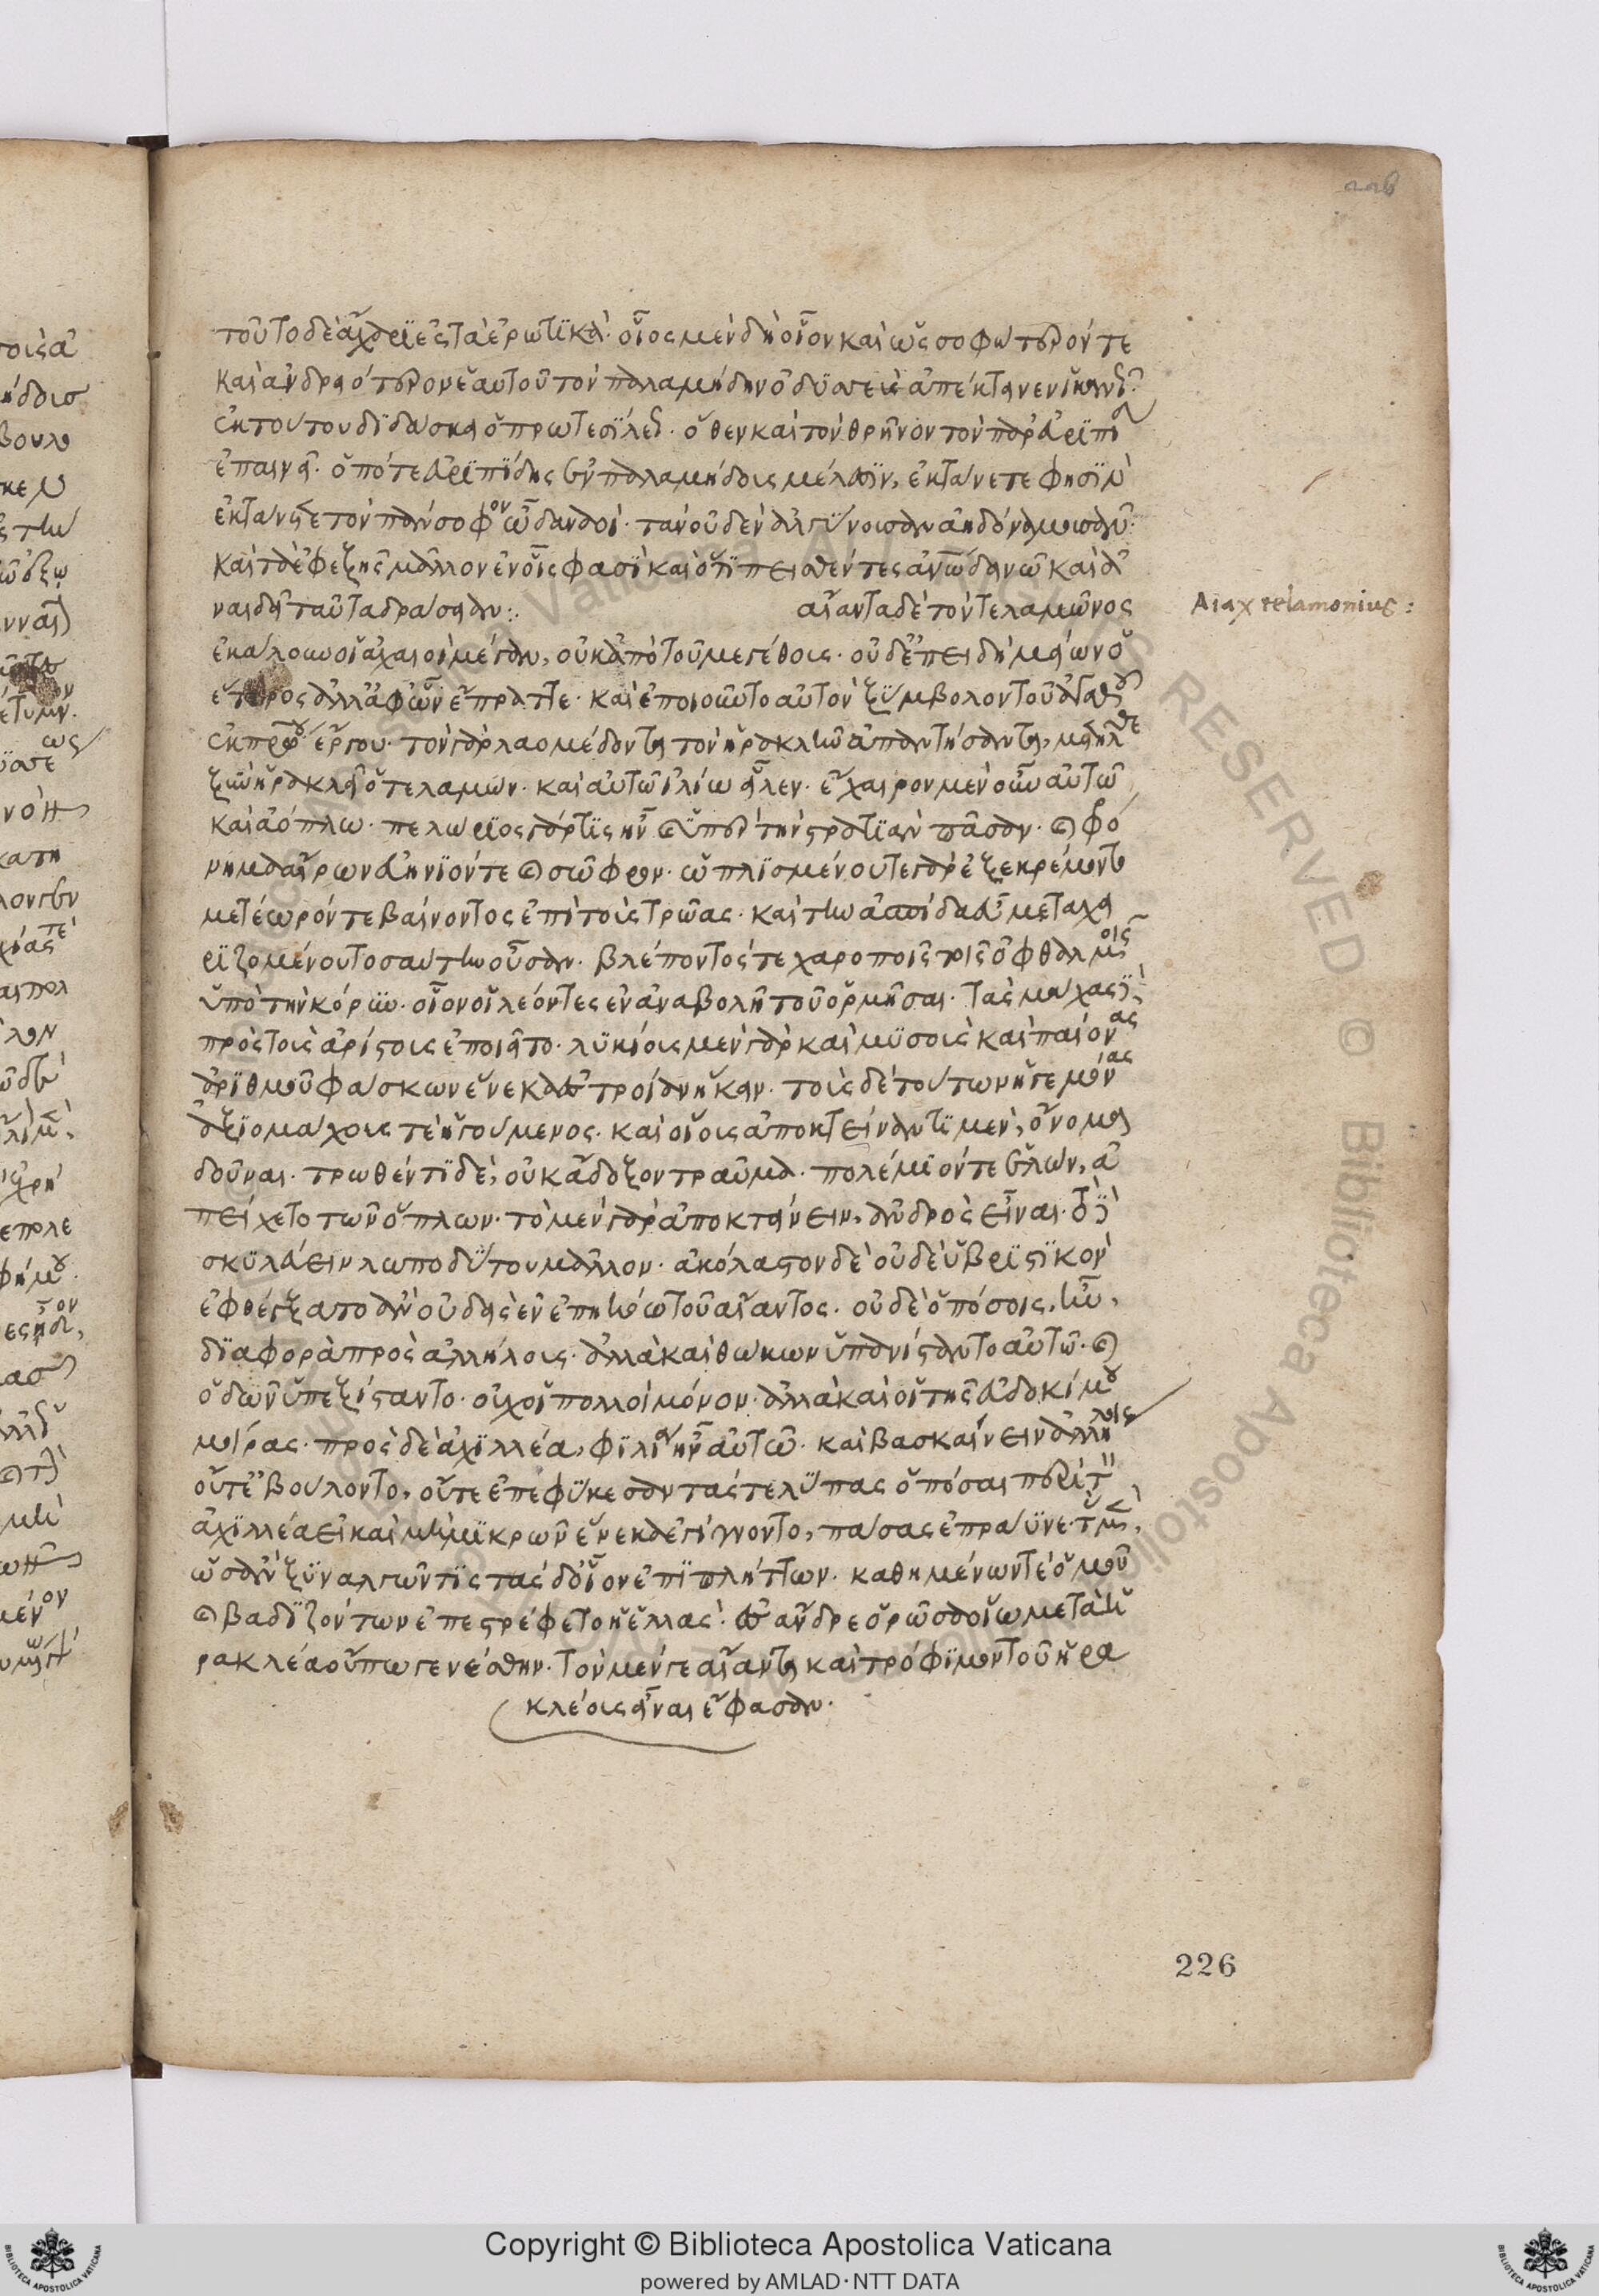 226
τοῦτο δὲ ἀχάριες τὰ ἐρωτικὰ. οἷος μὲν δὴ οἷον καὶ ὡς σοφώτερόν τε
καὶ ἀνδρειότερον ἑαυτοῦ τὸν παλαμήδην ὀδυσσεὺς ἀπέκτεινεν ἱκανῶς
ἐκ τούτου διδάσκει ὁ πρωτεσίλεως. ὅθεν καὶ τὸν θρῆνον τὸν παρ' εὐριπίδου
ἐπαινεῖ. ὁπότε εὐριπίδης ἐν παλαμήδους μέλεσιν, ἐκτάνετε φησὶν
ἐκτάνετε τὸν πάνσοφον ὦ δαναοί. τὰν οὐδὲν ἀλγύνουσαν ἀηδόνα μουσᾶν.
καὶ τὰ ἐφεξῆς μᾶλλον ἐν οἷς φασὶ καὶ ὅτι πεισθέντες ἀνθρώπῳ δεινῷ καὶ ἀ
ναιδεῖ ταῦτα δράσειαν:. αἴαντα δὲ τὸν τελαμῶνος
Aiax telamonius:
ἐκάλουν οἱ ἀχαιοὶ μέγαν, οὐκ ἀπὸ τοῦ μεγέθους. οὐδ' ἐπειδὴ μείων ὁ
ἕτερος ἀλλ' ἀφ' ὧν ἔπραττε. καὶ ἐποιοῦντο αὐτὸν ξύμβολον τοῦ
ἐκ πατρῴου ἔργου. τὸν γὰρ λαομέδοντα τὸν ἡρακλῆν ἀπατήσαντα, μετῆλθε
ξὺν ἡρακλεῖ ὁ τελαμών. καὶ αὐτῷ ἰλίῳ εἷλεν. ἔχαιρον μὲν οὖν αὐτῷ
καὶ ἀόπλῳ. πελώριος γάρ τις ἦν καὶ ὑπὲρ τὴν στρατιὰν πᾶσαν. καὶ φρό
νημα αἴρων εὐήνιόν τε καὶ σῶφρον. ὡπλισμένου τε γὰρ ἐξεκρέμαντο
μετέωρόν τε βαίνοντος ἐπὶ τοὺς τρῶας. καὶ τὴν ἀσπίδα εὖ μεταχει
ριζομένου τοσαύτην οὖσαν. βλέποντός τε χαροποῖς τοῖς ὀφθαλμοῖς
ὑπὸ τὴν κόρυν. οἷον οἱ λέοντες ἐν ἀναβολῇ τοῦ ὁρμῆσαι. τὰς μάχας δὲ
πρὸς τοὺς ἀρίστους ἐποιεῖτο. λυκίους μὲν γὰρ καὶ μυσοὺς καὶ παίονας
ἀριθμοῦ φάσκων ἕνεκα ἐς τροίαν ἥκειν. τοὺς δὲ τούτων ἡγεμόνας
ἀξιομάχους τε ἡγούμενος. καὶ οἵους ἀποκτείναντι μὲν, ὄνομα
δοῦναι. τρωθέντι δὲ, οὐκ ἄδοξον τραῦμα. πολέμιόν τε ἑλὼν, ἀ
πείχετο τῶν ὅπλων. τὸ μὲν γὰρ ἀποκτείνειν, ἀνδρὸς εἶναι. τὸ δὲ
σκυλεύειν λωποδύτου μᾶλλον. ἀκόλαστον δὲ οὐδὲ ὑβριστικὸν
ἐφθέγξατο ἂν οὐδεὶς ἐν ἐπηκόῳ τοῦ αἴαντος. οὐδὲ ὁπόσοις, ἦν,
διαφορὰ πρὸς ἀλλήλους. ἀλλὰ καὶ θώκων ὑπανίσταντο αὐτῷ. καὶ
ὁδῶν ὑπεξίσταντο. οὐχ οἱ πολλοὶ μόνον. ἀλλὰ καὶ οἱ τῆς εὐδοκίμου
μοίρας. πρὸς δὲ ἀχιλλέα, φιλία ἦν αὐτῷ. καὶ βασκαίνειν ἀλλήλοις
οὔτ' ἐβούλοντο, οὔτε ἐπεφύκεσαν τάς τε λύπας ὁπόσαι περὶ τὸν
ἀχιλλέα εἰ καὶ μὴ μικρῶν ἕνεκα ἐγίγνοντο, πάσας ἐπράυνε. τὰς μὲν,
ὡς ἂν ξυναλγῶν τις τὰς δ' οἷον ἐπιπλήττων. καθημένων τε ὁμοῦ
καὶ βαδιζόντων ἐπεστρέφετο ἡ ἑλλὰς. ἐς ἄνδρε ὁρῶσα οἵω μετὰ ἡ
ρακλέα οὔπω γενέσθην. τὸν μέν γε αἴαντα καὶ τρόφιμον τοῦ ἡρα
κλέους εἶναι ἔφασαν.
226
Copyright © Biblioteca Apostolica Vaticana
powered by AMLAD·NTT DATA